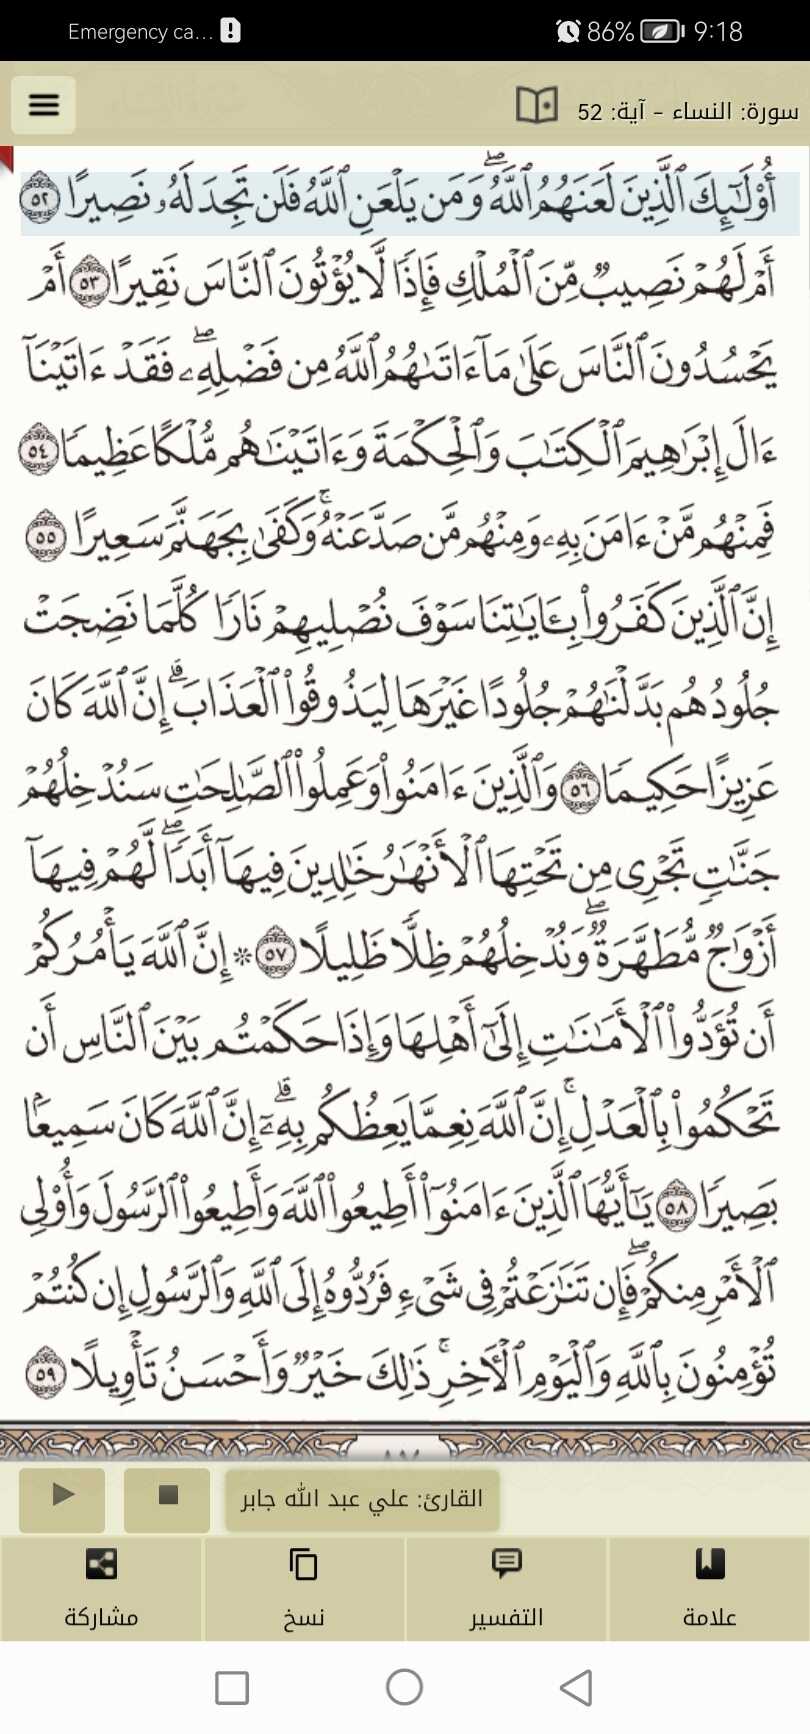 Emergency ca...
86% 9:18
سورة: النساء - آية: 52
أُوْلَـٰٓئِكَ ٱلَّذِينَ لَعَنَهُمُ ٱللَّهُۖ وَمَن يَلْعَنِ ٱللَّهُ فَلَن تَجِدَ لَهُۥ نَصِيرًا ٥٢
أَمْ لَهُمْ نَصِيبٌ مِّنَ ٱلْمُلْكِ فَإِذًا لَّا يُؤْتُونَ ٱلنَّاسَ نَقِيرًا ٥٣ أَمْ
يَحْسُدُونَ ٱلنَّاسَ عَلَىٰ مَآ ءَاتَىٰهُمُ ٱللَّهُ مِن فَضْلِهِۦۖ فَقَدْ ءَاتَيْنَآ
ءَالَ إِبْرَٰهِيمَ ٱلْكِتَـٰبَ وَٱلْحِكْمَةَ وَءَاتَيْنَـٰهُم مُّلْكًا عَظِيمًا ٥٤
فَمِنْهُم مَّنْ ءَامَنَ بِهِۦ وَمِنْهُم مَّن صَدَّ عَنْهُۚ وَكَفَىٰ بِجَهَنَّمَ سَعِيرًا ٥٥
إِنَّ ٱلَّذِينَ كَفَرُواْ بِـَٔايَـٰتِنَا سَوْفَ نُصْلِيهِمْ نَارًا كُلَّمَا نَضِجَتْ
جُلُودُهُم بَدَّلْنَـٰهُمْ جُلُودًا غَيْرَهَا لِيَذُوقُواْ ٱلْعَذَابَۗ إِنَّ ٱللَّهَ كَانَ
عَزِيزًا حَكِيمًا ٥٦ وَٱلَّذِينَ ءَامَنُواْ وَعَمِلُواْ ٱلصَّـٰلِحَـٰتِ سَنُدْخِلُهُمْ
جَنَّـٰتٍ تَجْرِى مِن تَحْتِهَا ٱلْأَنْهَـٰرُ خَـٰلِدِينَ فِيهَآ أَبَدًاۖ لَّهُمْ فِيهَآ
أَزْوَٰجٌ مُّطَهَّرَةٌۖ وَنُدْخِلُهُمْ ظِلًّا ظَلِيلًا ٥٧ ۞ إِنَّ ٱللَّهَ يَأْمُرُكُمْ
أَن تُؤَدُّواْ ٱلْأَمَـٰنَـٰتِ إِلَىٰٓ أَهْلِهَا وَإِذَا حَكَمْتُم بَيْنَ ٱلنَّاسِ أَن
تَحْكُمُواْ بِٱلْعَدْلِۚ إِنَّ ٱللَّهَ نِعِمَّا يَعِظُكُم بِهِۦٓۗ إِنَّ ٱللَّهَ كَانَ سَمِيعًۢا
بَصِيرًا ٥٨ يَـٰٓأَيُّهَا ٱلَّذِينَ ءَامَنُوٓاْ أَطِيعُواْ ٱللَّهَ وَأَطِيعُواْ ٱلرَّسُولَ وَأُوْلِى
ٱلْأَمْرِ مِنكُمْۖ فَإِن تَنَـٰزَعْتُمْ فِى شَىْءٍ فَرُدُّوهُ إِلَى ٱللَّهِ وَٱلرَّسُولِ إِن كُنتُمْ
تُؤْمِنُونَ بِٱللَّهِ وَٱلْيَوْمِ ٱلْـَٔاخِرِۚ ذَٰلِكَ خَيْرٌ وَأَحْسَنُ تَأْوِيلًا ٥٩
القارئ: علي عبد الله جابر
علامة
التفسير
نسخ
مشاركة